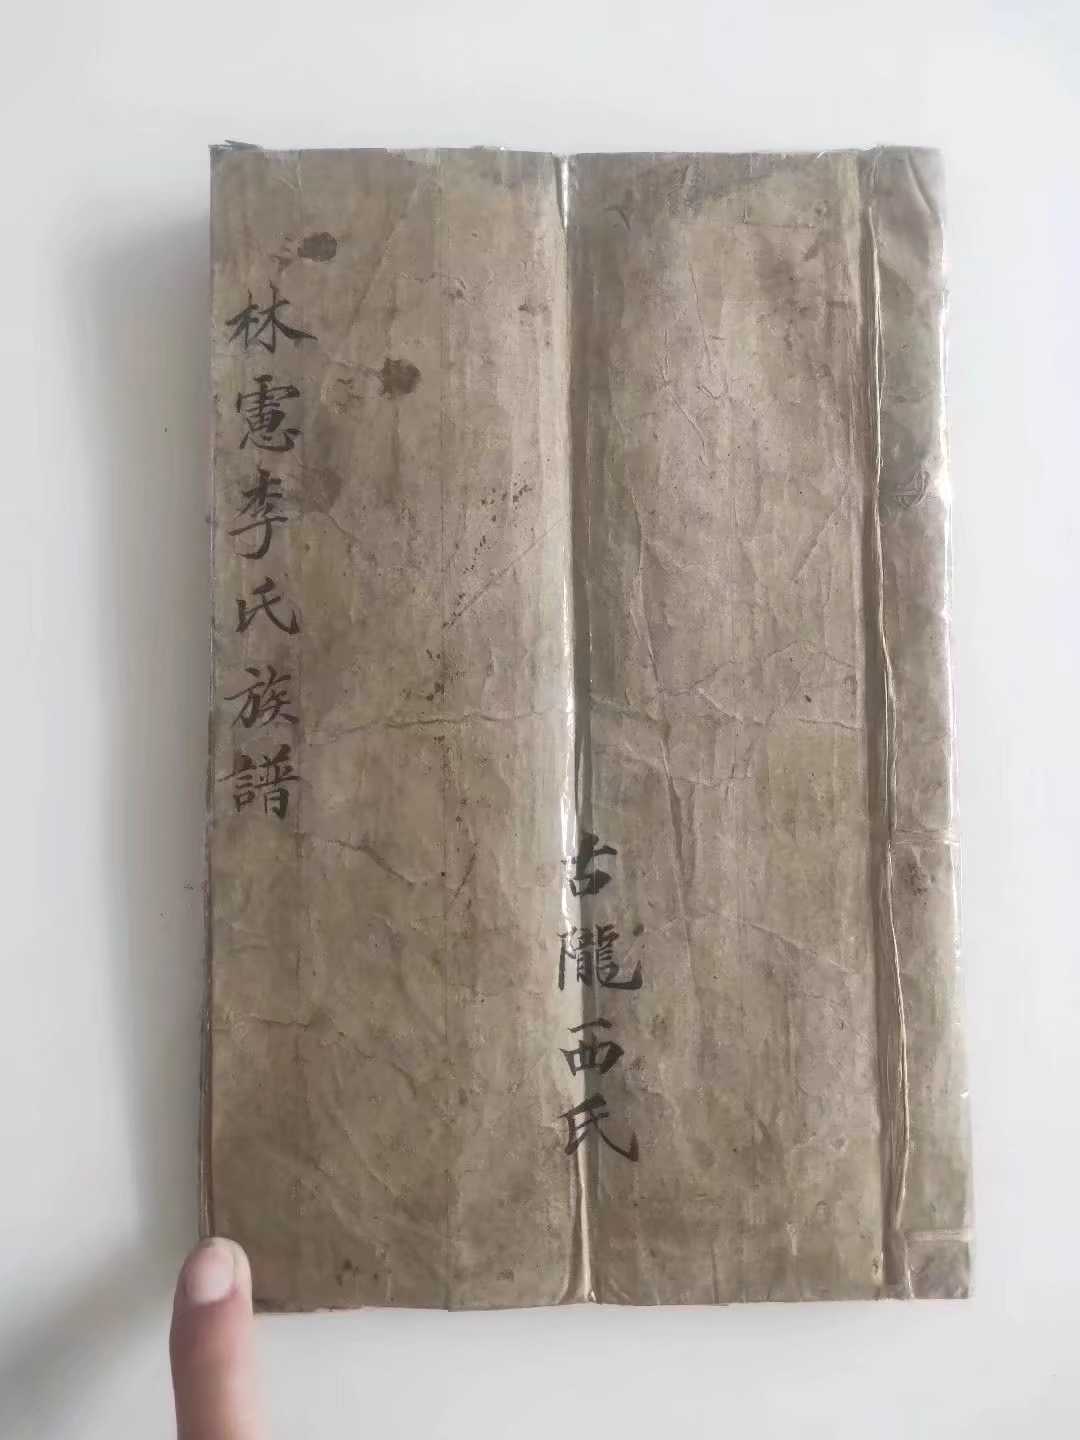 古隴西氏
林慮李氏族譜